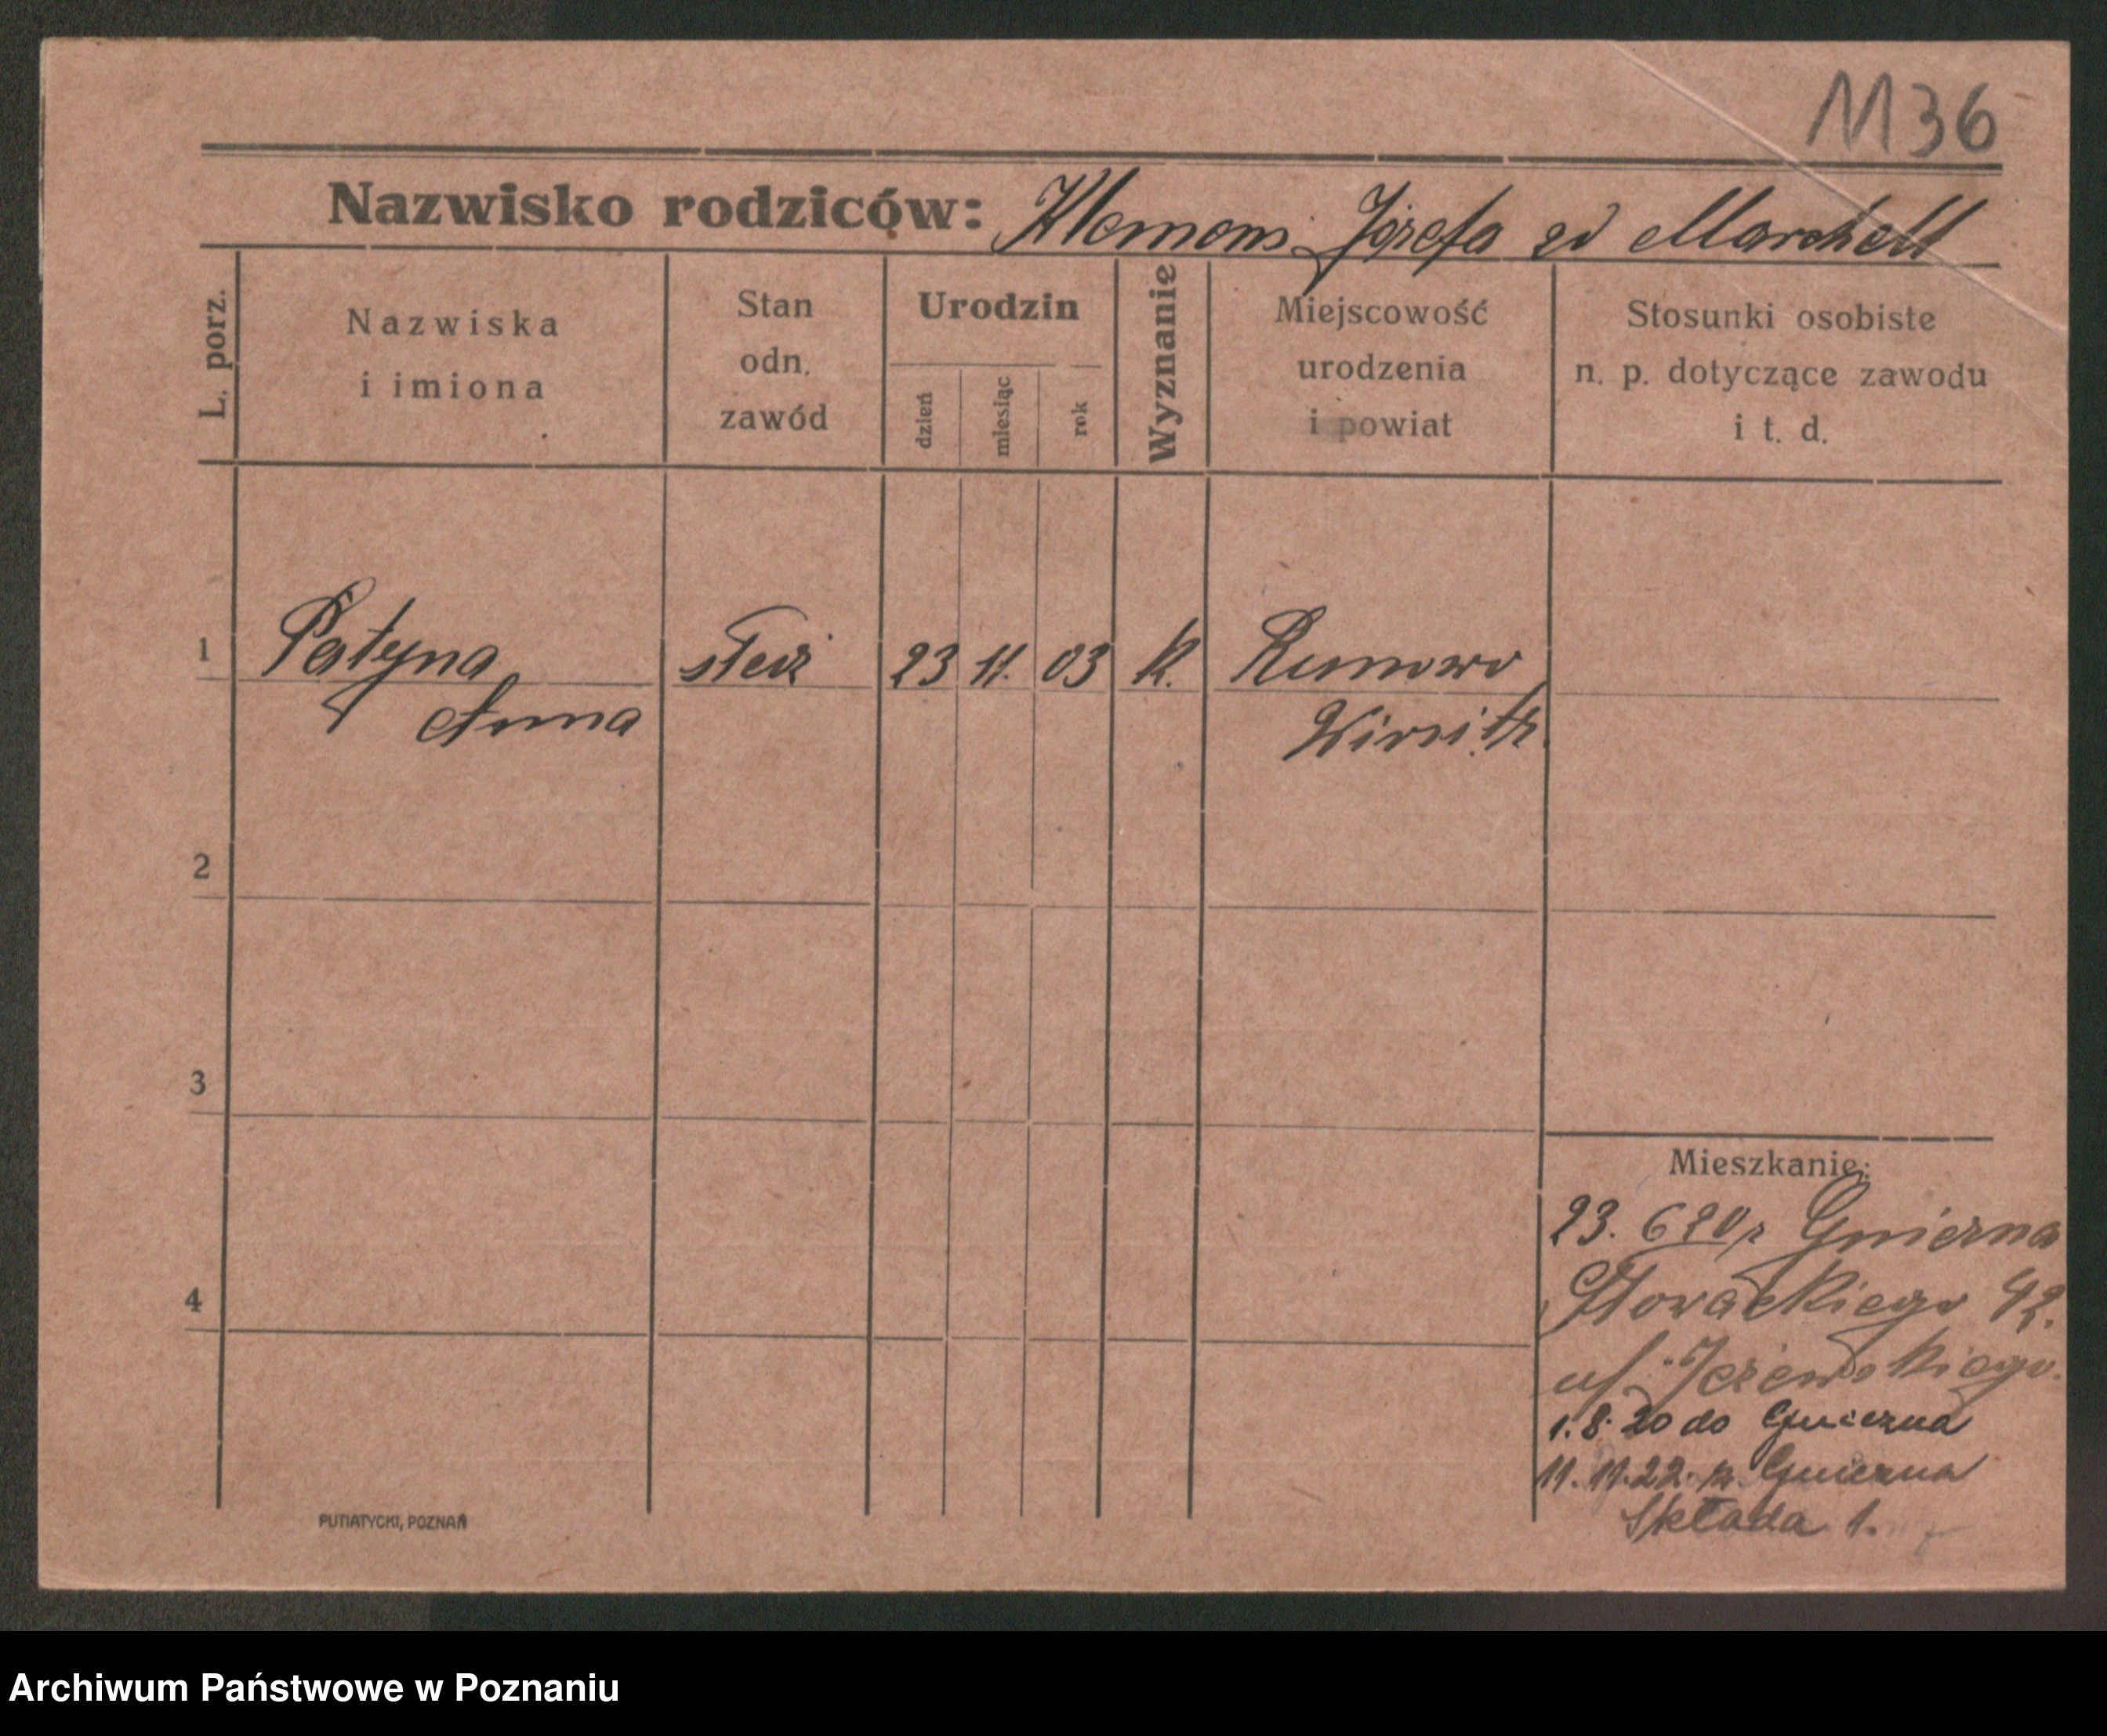 1136
Nazwisko rodziców: Klemens, Józefa zd Marchell
L. porz.
Nazwiska
i imiona
Stan
odn.
zawód
Urodzin
dzień
miesiąc
rok
Wyznanie
Miejscowość
urodzenia
i powiat
Stosunki osobiste
n. p. dotyczące zawodu
i t. d.
1 Patyna 23 11. 03 k. Runowo
Anna
2
3
4
Mieszkanie:
23. 6 20 z Gniezna
Słowackiego 42.
1. 8. 20 do Gniezna
11. 11. 22. z. Gniezna
Składa 1.
PUTIATYCKI, POZNAŃ
Archiwum Państwowe w Poznaniu